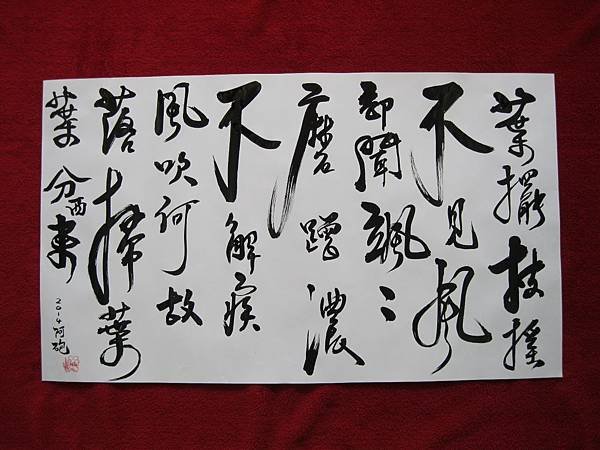 葉擺枝搖
不見風
卻聞颯〻
磨蹭濃
不解
風吹何故
落掃葉
葉分西東
2014阿砲